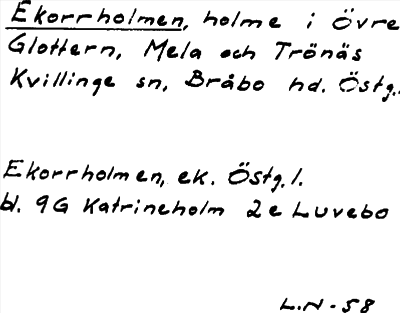 Ekorrholmen, holme i Övre
Glottern, Mela och Trönäs
Kvillinge sn, Bråbo hd. Östg.
Ekorrholmen, ek. Östg. l.
bl. 9G Katrineholm 2e Luvebo
L.N-58